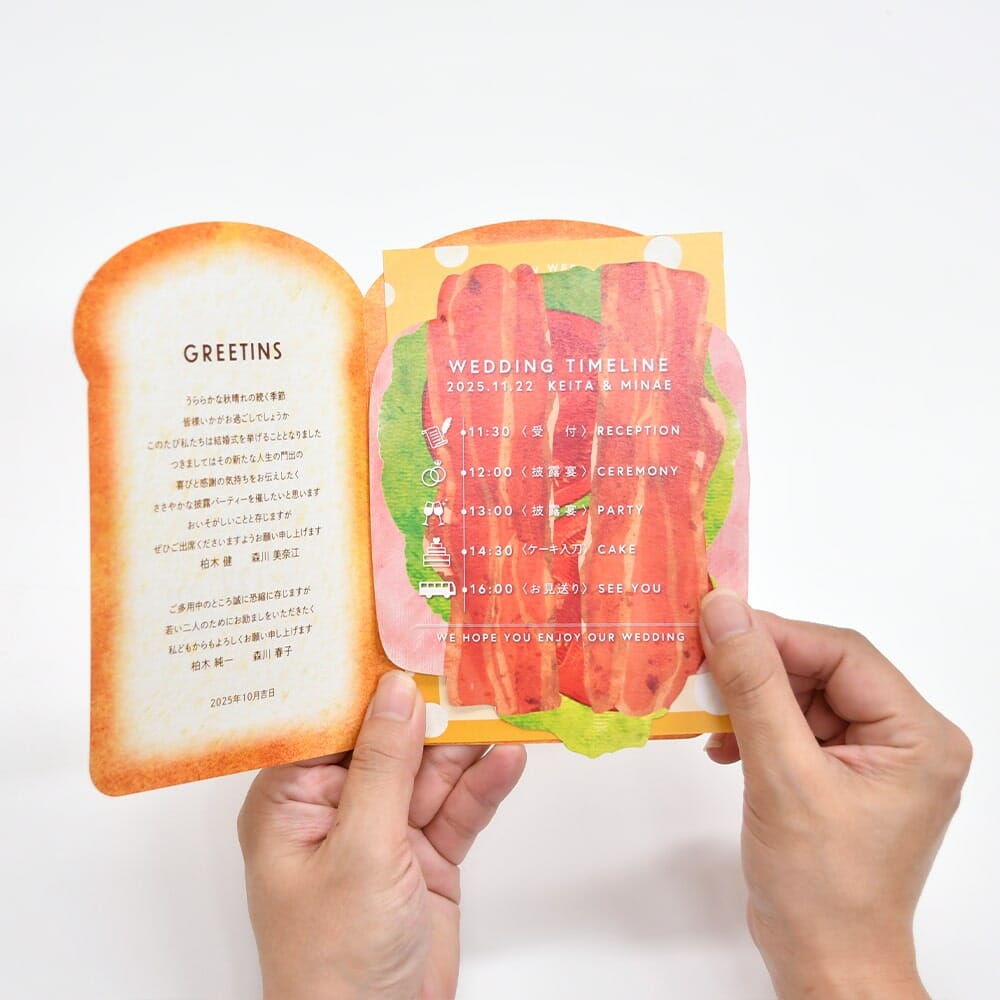 GREETINS
うららかな秋晴れの続く季節
皆様いかがお過ごしでしょうか
このたび私たちは結婚式を挙げることとなりました
つきましてはその新たな人生の門出の
喜びと感謝の気持ちをお伝えしたく
ささやかな披露パーティーを催したいと思います
おいそがしいことと存じますが
ぜひご出席くださいますようお願い申し上げます
柏木 健 森川 美奈江
ご多用中のところ誠に恐縮に存じますが
若い二人のためにお励ましをいただきたく
私どもからもよろしくお願い申し上げます
柏木 純一 森川 春子
2025年10月吉日
WEDDING TIMELINE
2025.11.22 KEITA & MINAE
11:30 〈受 付〉 RECEPTION
12:00 〈披露宴〉 CEREMONY
13:00 〈披露宴〉 PARTY
14:30 〈ケーキ入刀〉 CAKE
16:00 〈お見送り〉 SEE YOU
WE HOPE YOU ENJOY OUR WEDDING